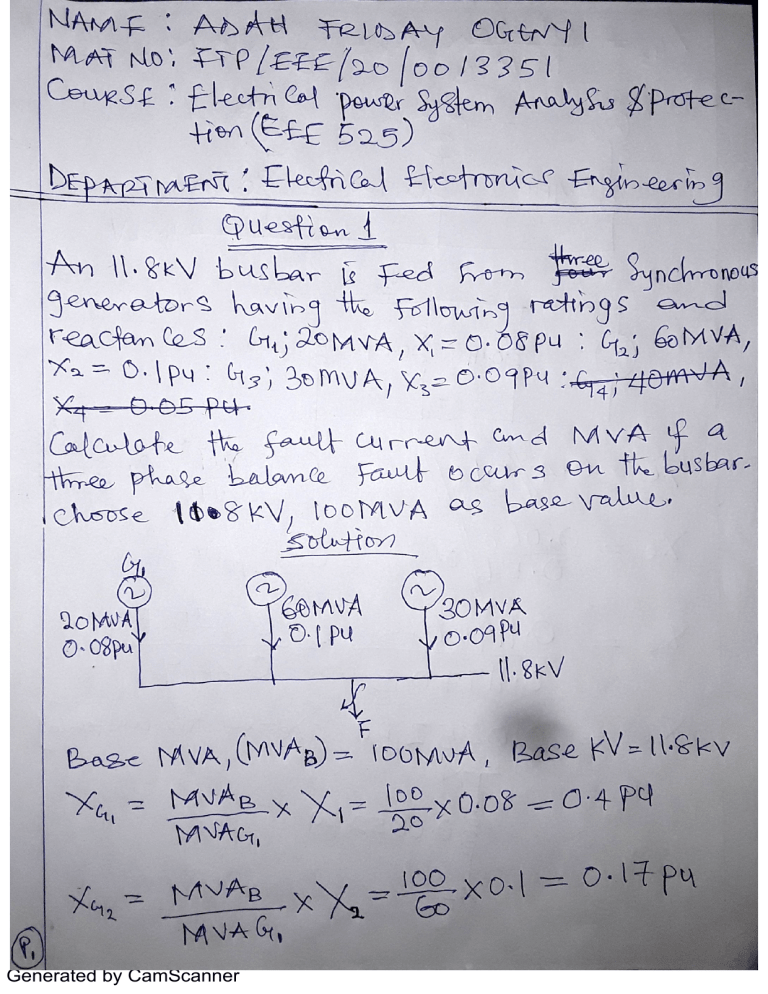 NAME : ADAH FRIDAY OGENYI
MAT NO: FTP/EEE/20/0013351
COURSE : Electrical power System Analysis & Protec-
tion (EEE 525)
DEPARTMENT : Electrical Electronics Engineering
Question 1
An 11.8KV busbar is Fed from three Synchronous
generators having the following ratings and
reactances : G1; 20MVA, X1 = 0.08PU : G2; 60MVA,
X2 = 0.1PU : G3; 30MVA, X3 = 0.09PU : G4; 40MVA,
X4 = 0.05 PU.
Calculate the fault current and MVA if a
three phase balance Fault occurs on the busbar.
choose 11.8KV, 100MVA as base value.
Solution
G1
20MVA
0.08PU
60MVA
0.1PU
30MVA
0.09PU
11.8KV
F
Base MVA, (MVAB) = 100MVA, Base KV = 11.8KV
XG1 = MVAB/MVAG1 × X1 = 100/20 × 0.08 = 0.4 PU
XG2 = MVAB/MVAG1 × X2 = 100/60 × 0.1 = 0.17 PU
P1
Generated by CamScanner